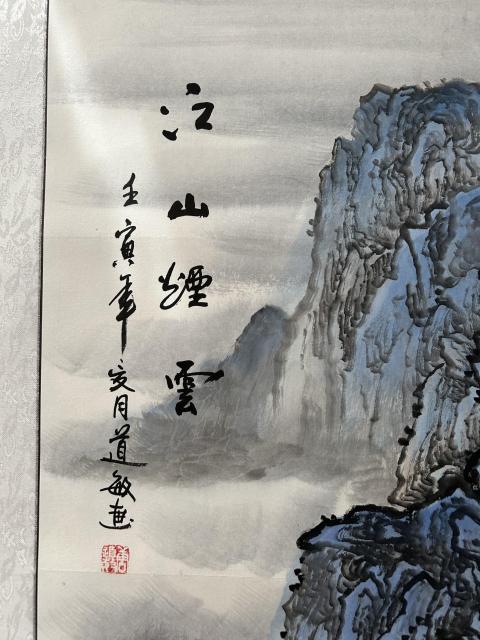 江山煙雲
壬寅年月道敏畫